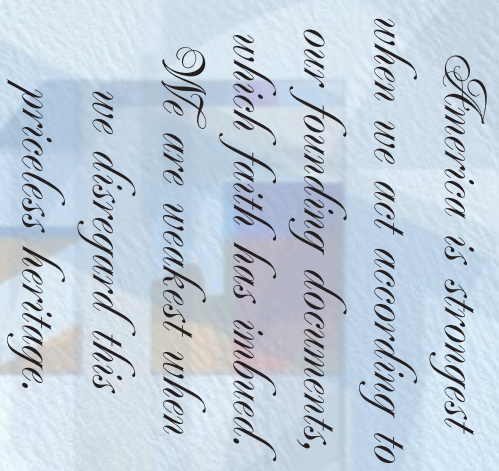 America is strongest
when we act according to
our founding documents,
which faith has imbued.
We are weakest when
we disregard this
priceless heritage.